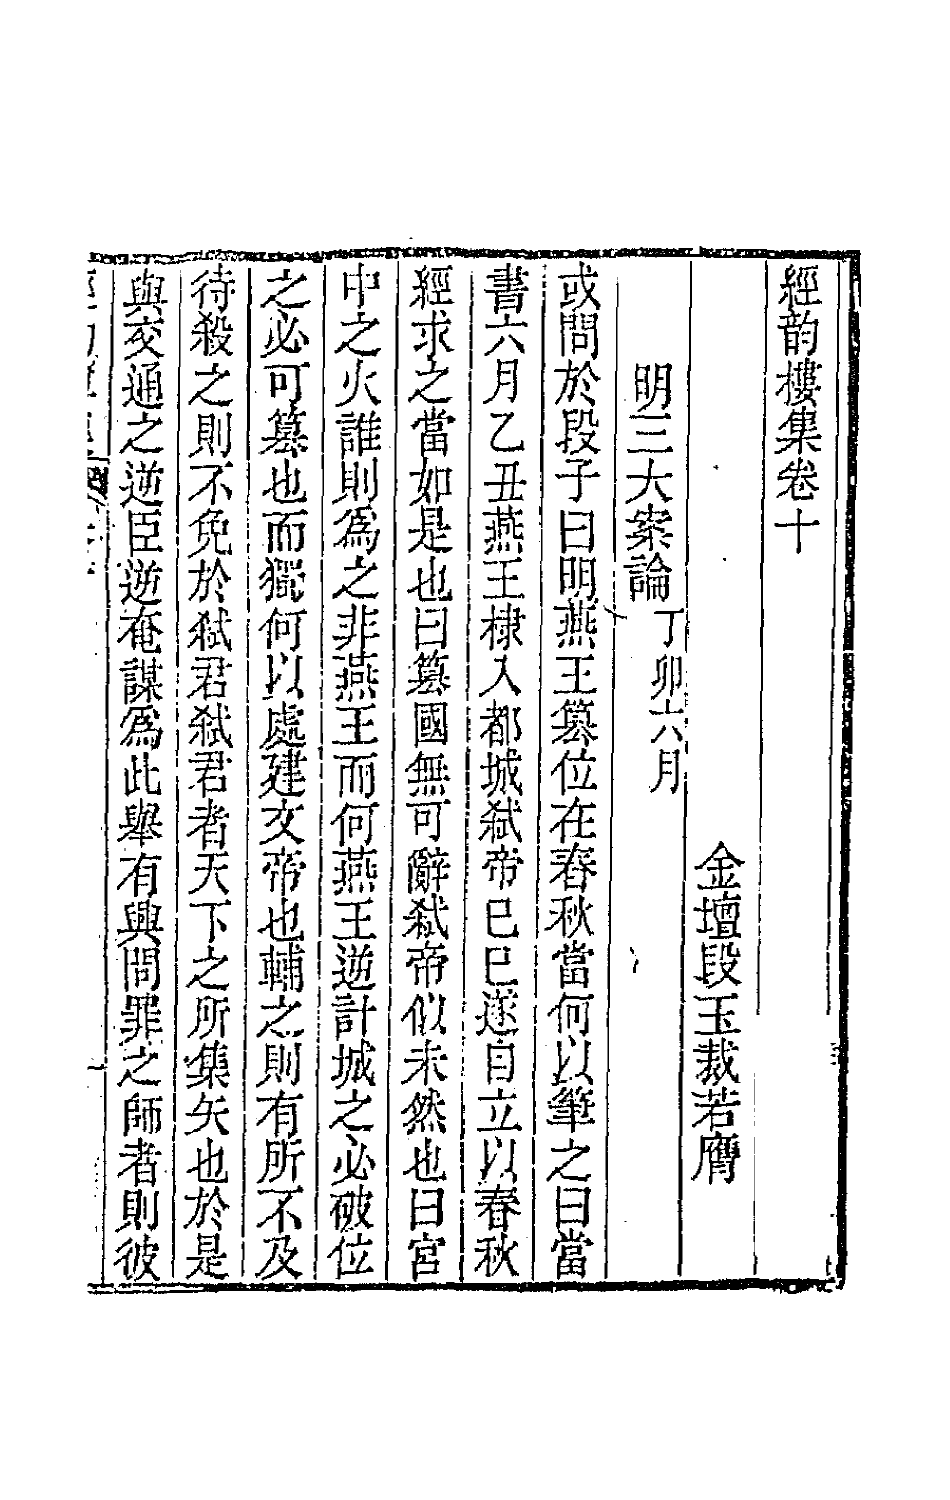 經韵樓集卷十
金壇段玉裁若膺
明三大案論丁卯六月
或問於段子曰明燕王篡位在春秋當何以筆之曰當
書六月乙丑燕王棣入都城弑帝已巳遂自立以春秋
經求之當如是也曰篡國無可辭弑帝似未然也曰宮
中之火誰則爲之非燕王而何燕王逆計城之必破位
之必可篡也而獨何以處建文帝也輔之則有所不及
待殺之則不免於弑君弑君者天下之所集矢也於是
與交通之逆臣逆奄謀爲此舉有興問罪之師者則彼